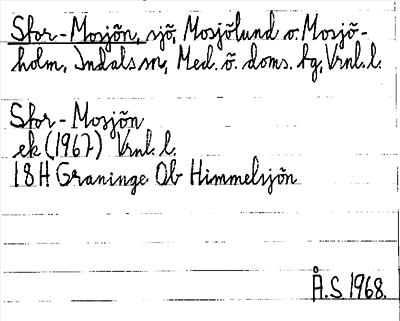 Stor-Mosjön, sjö, Mosjölund o. Mosjö-
holm, Indals sn, Med. ö. doms. tg, Vrnl. l.
Stor-Mosjön
ek (1967) Vrnl. l.
18H Graninge Ob Himmelsjön
Å.S. 1968.